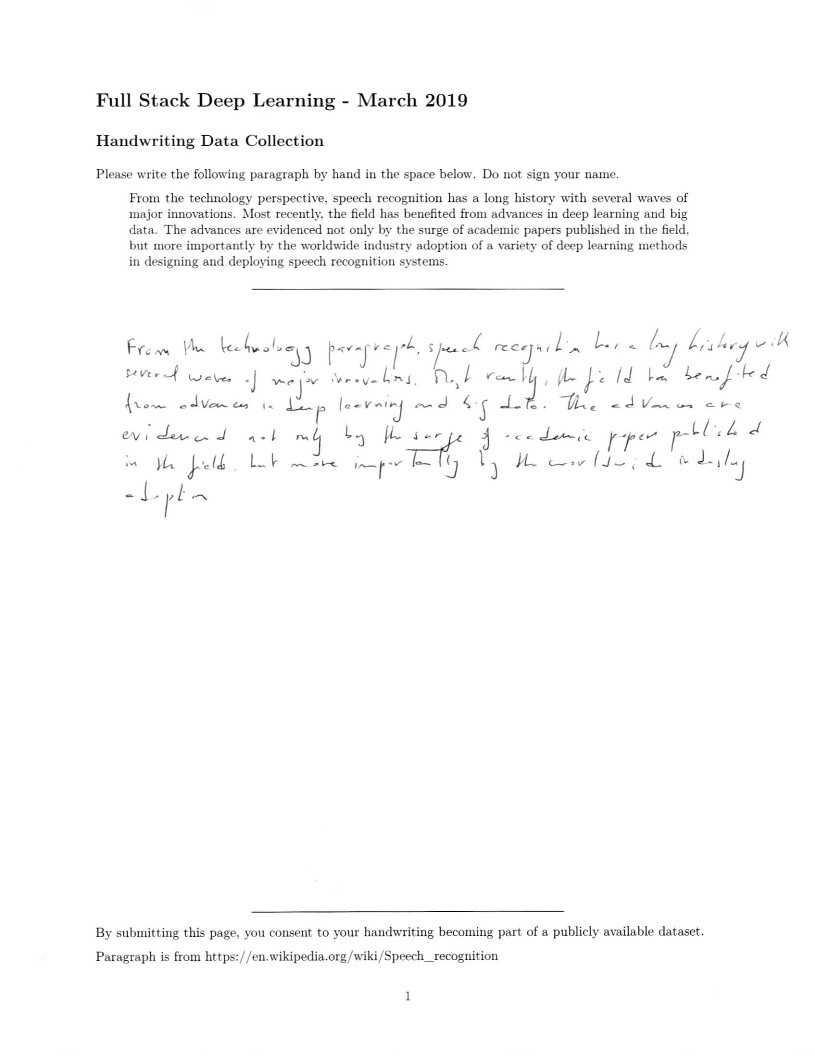 Full Stack Deep Learning - March 2019
Handwriting Data Collection
Please write the following paragraph by hand in the space below. Do not sign your name.
From the technology perspective, speech recognition has a long history with several waves of
major innovations. Most recently, the field has benefited from advances in deep learning and big
data. The advances are evidenced not only by the surge of academic papers published in the field,
but more importantly by the worldwide industry adoption of a variety of deep learning methods
in designing and deploying speech recognition systems.
From the technology paragraph, speech recognition has a long history with
several waves of major innovations. Most recently, the field has benefited
from advances in deep learning and big data. The advances are
evidenced not only by the surge of academic papers published
in the field, but more importantly by the worldwide industry
adoption
By submitting this page, you consent to your handwriting becoming part of a publicly available dataset.
Paragraph is from https://en.wikipedia.org/wiki/Speech_recognition
1